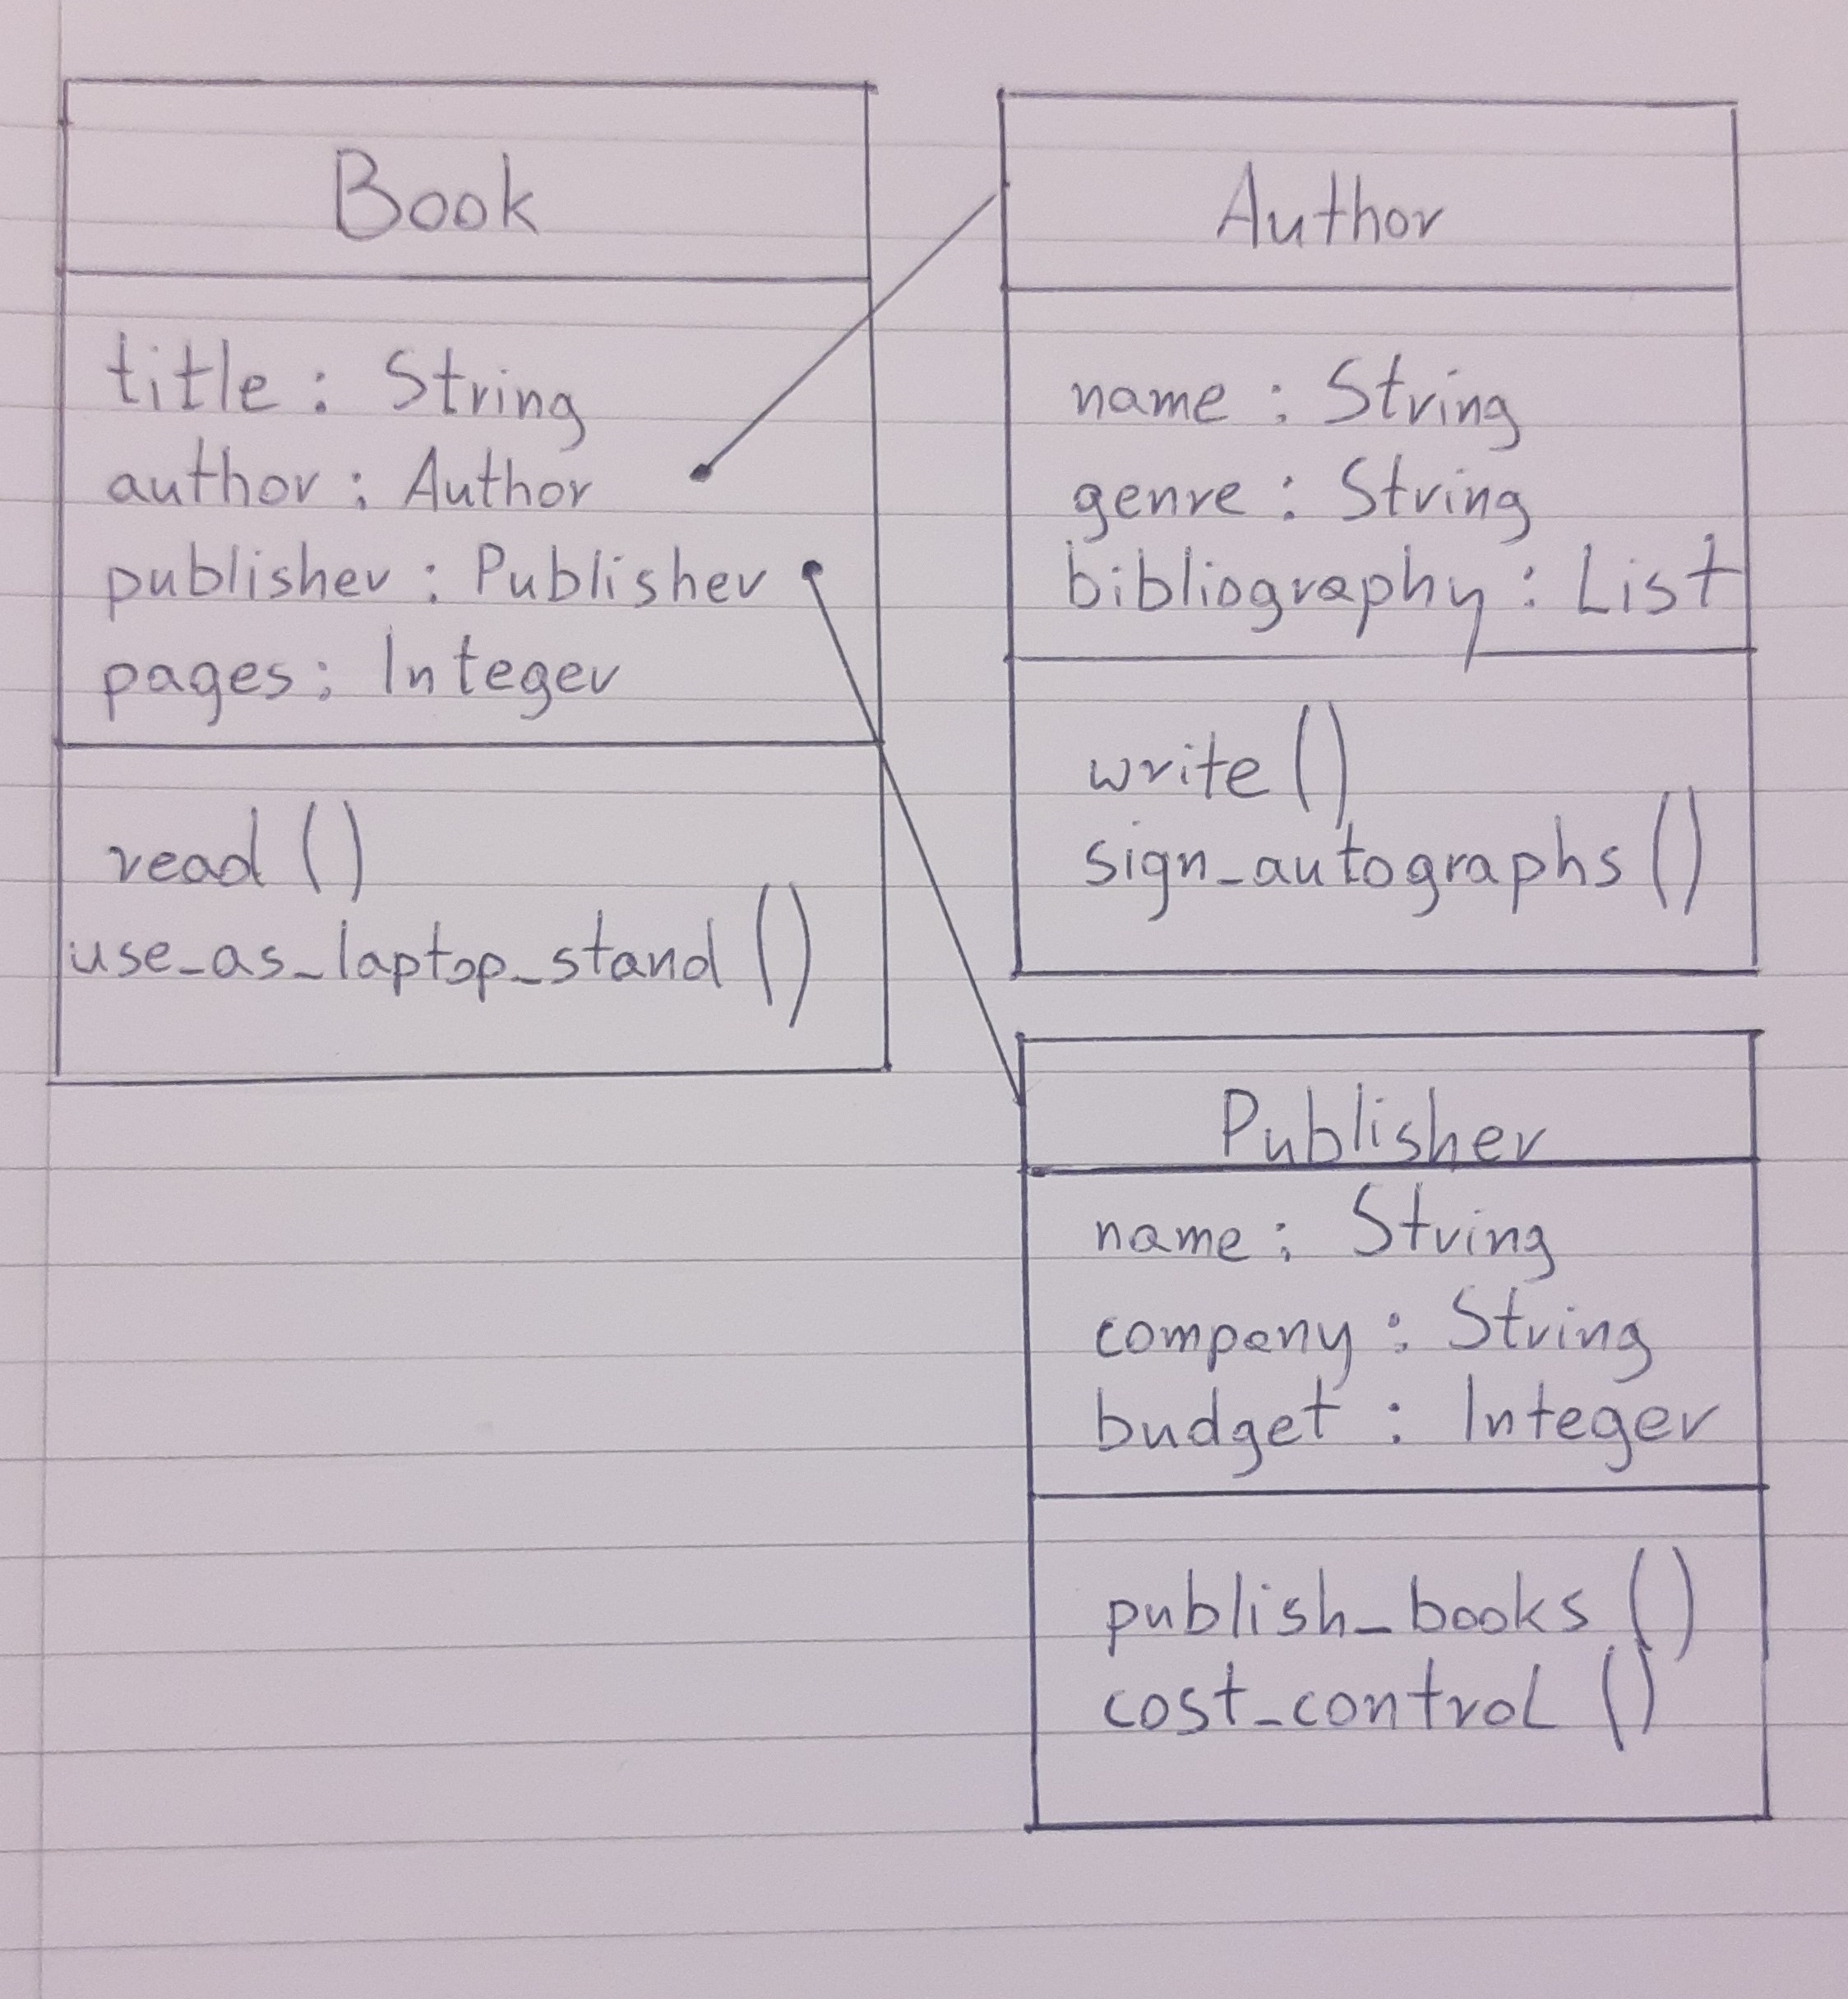 Book
title : String
author : Author
publisher : Publisher
pages : Integer
read ()
use_as_laptop_stand ()
Author
name : String
genre : String
bibliography : List
write ()
sign_autographs ()
Publisher
name : String
company : String
budget : Integer
publish_books ()
cost_control ()